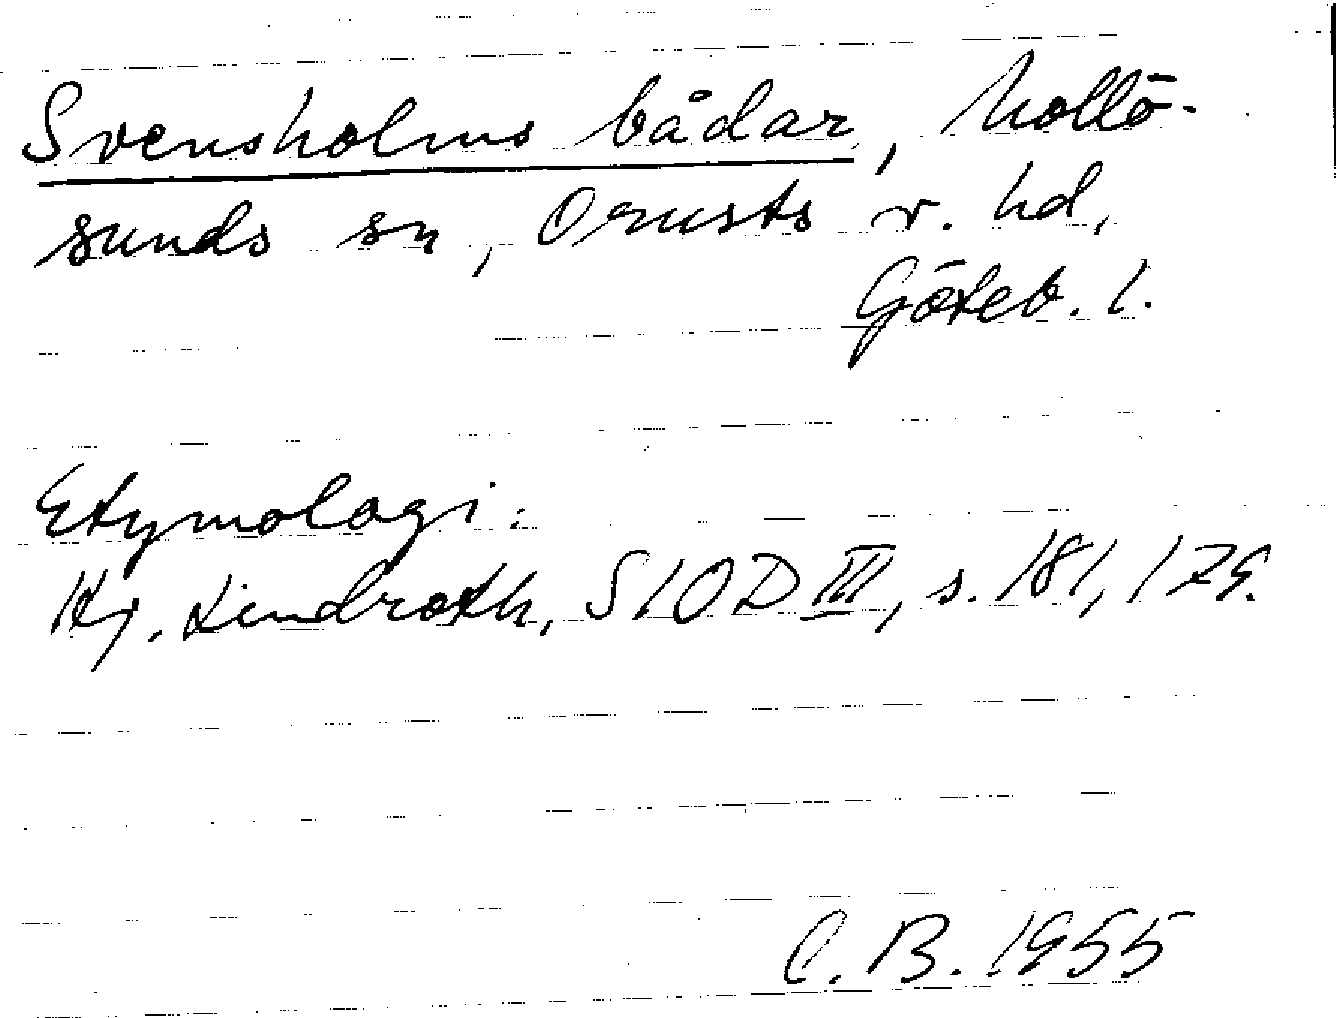 Svensholms bådar, Mollö-
sunds sn, Orusts v. hd,
Göteb. l.
Etymologi:
Hj. Lindroth, SIOD III, s. 181, 179.
C. B. 1955